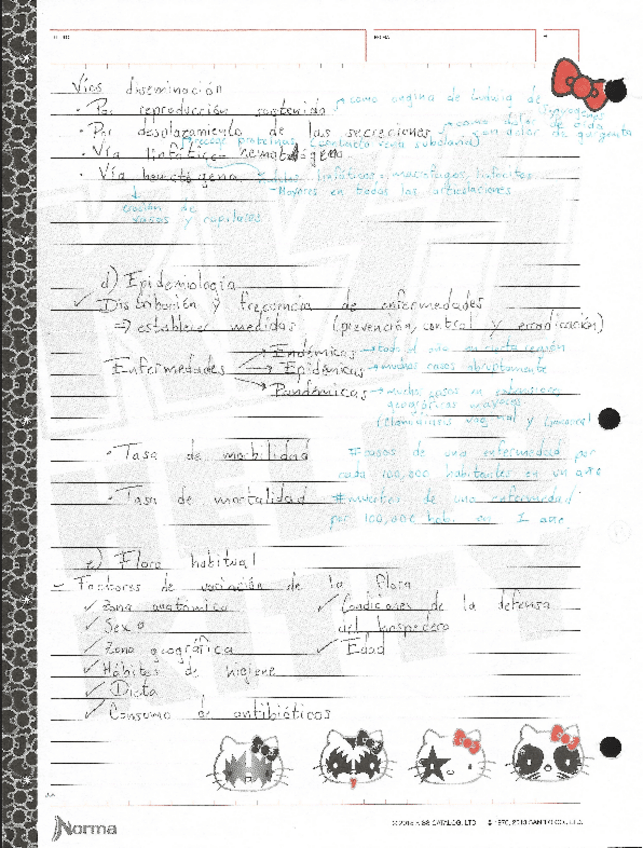 Vías diseminación
• Por reproducción contenida → como angina de Ludwig de
• Por desplazamiento de las secreciones → como dolor de oído con dolor de garganta
recoge proteínas (conducto vena subclavia)
• Vía linfática hematógena
• Vía hematógena linfáticos macrófagos, linfocitos
- Mayores en todas las articulaciones
↓
erosión de
vasos y capilares
d) Epidemiología
✓ Distribución y frecuencia de enfermedades
⇒ establecer medidas (prevención, control y erradicación)
Enfermedades → Endémicas → todo el año en cierta región
→ Epidémicas → muchos casos abruptamente
→ Pandémicas → muchos casos en extensiones
geográficas mayores
• Tasa de morbilidad #casos de una enfermedad por
cada 100,000 habitantes en un año
• Tasa de mortalidad #muertes de una enfermedad
por 100,000 hab. en 1 año
e) Flora habitual
- Factores de variación de la flora
✓ Zona anatómica ✓ Condiciones de la defensa
✓ Sexo del hospedero
✓ Zona geográfica ✓ Edad
✓ Hábitos de higiene
✓ Dieta
✓ Consumo de antibióticos
Norma